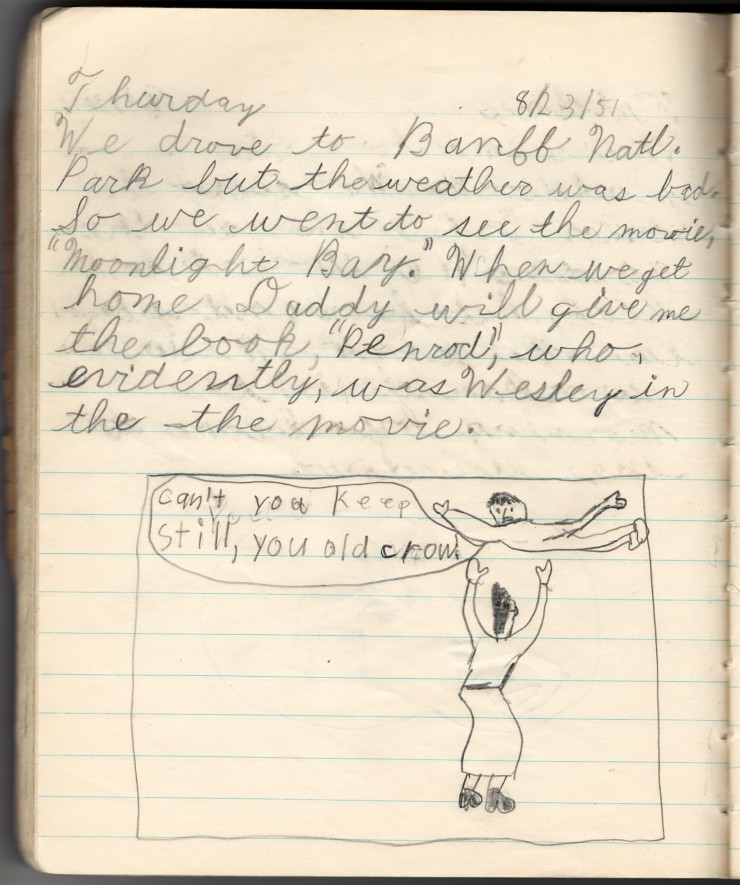 Thurday 8/23/51
We drove to Banff Natl.
Park but the weather was bad.
So we went to see the movie,
"Moonlight Bay." When we get
home Daddy will give me
the book, "Penrod", who,
evidently, was Wesley in
the the movie.
can't you keep
still, you old crow